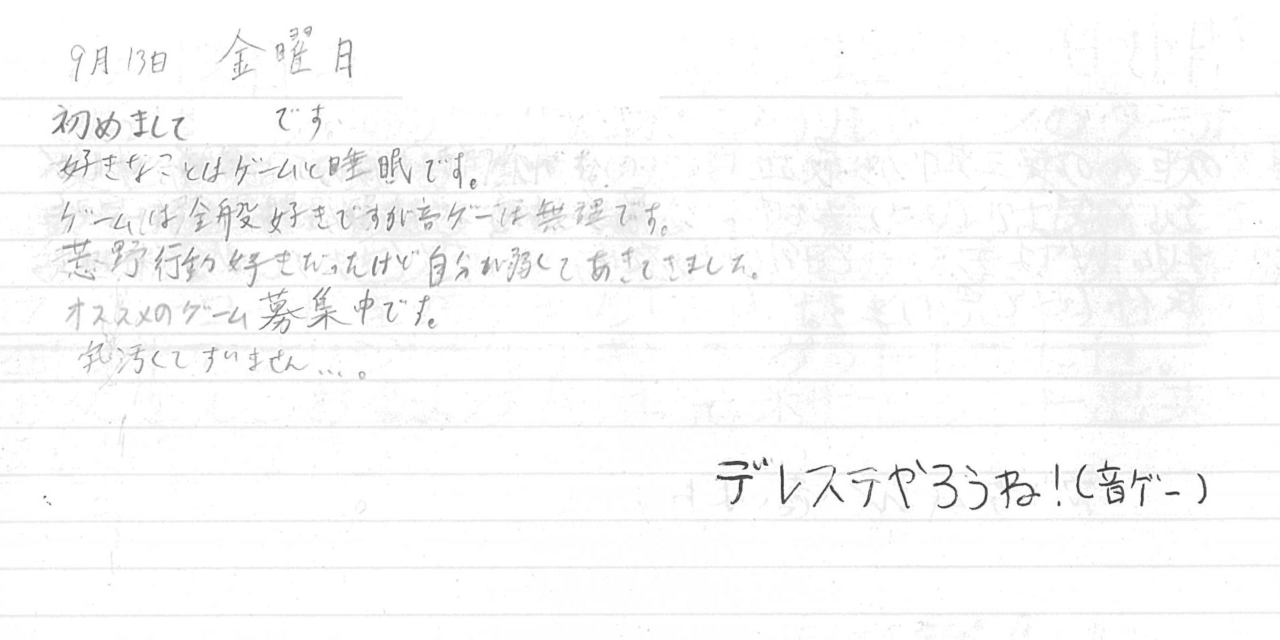 9月13日 金曜日
初めまして です
好きなことはゲームと睡眠です。
ゲームは全般好きですが音ゲーは無理です。
荒野行動好きだったけど自分が弱くてあきてきました。
オススメのゲーム募集中です。
字汚くてすいません…。
デレステやろうね!(音ゲー)